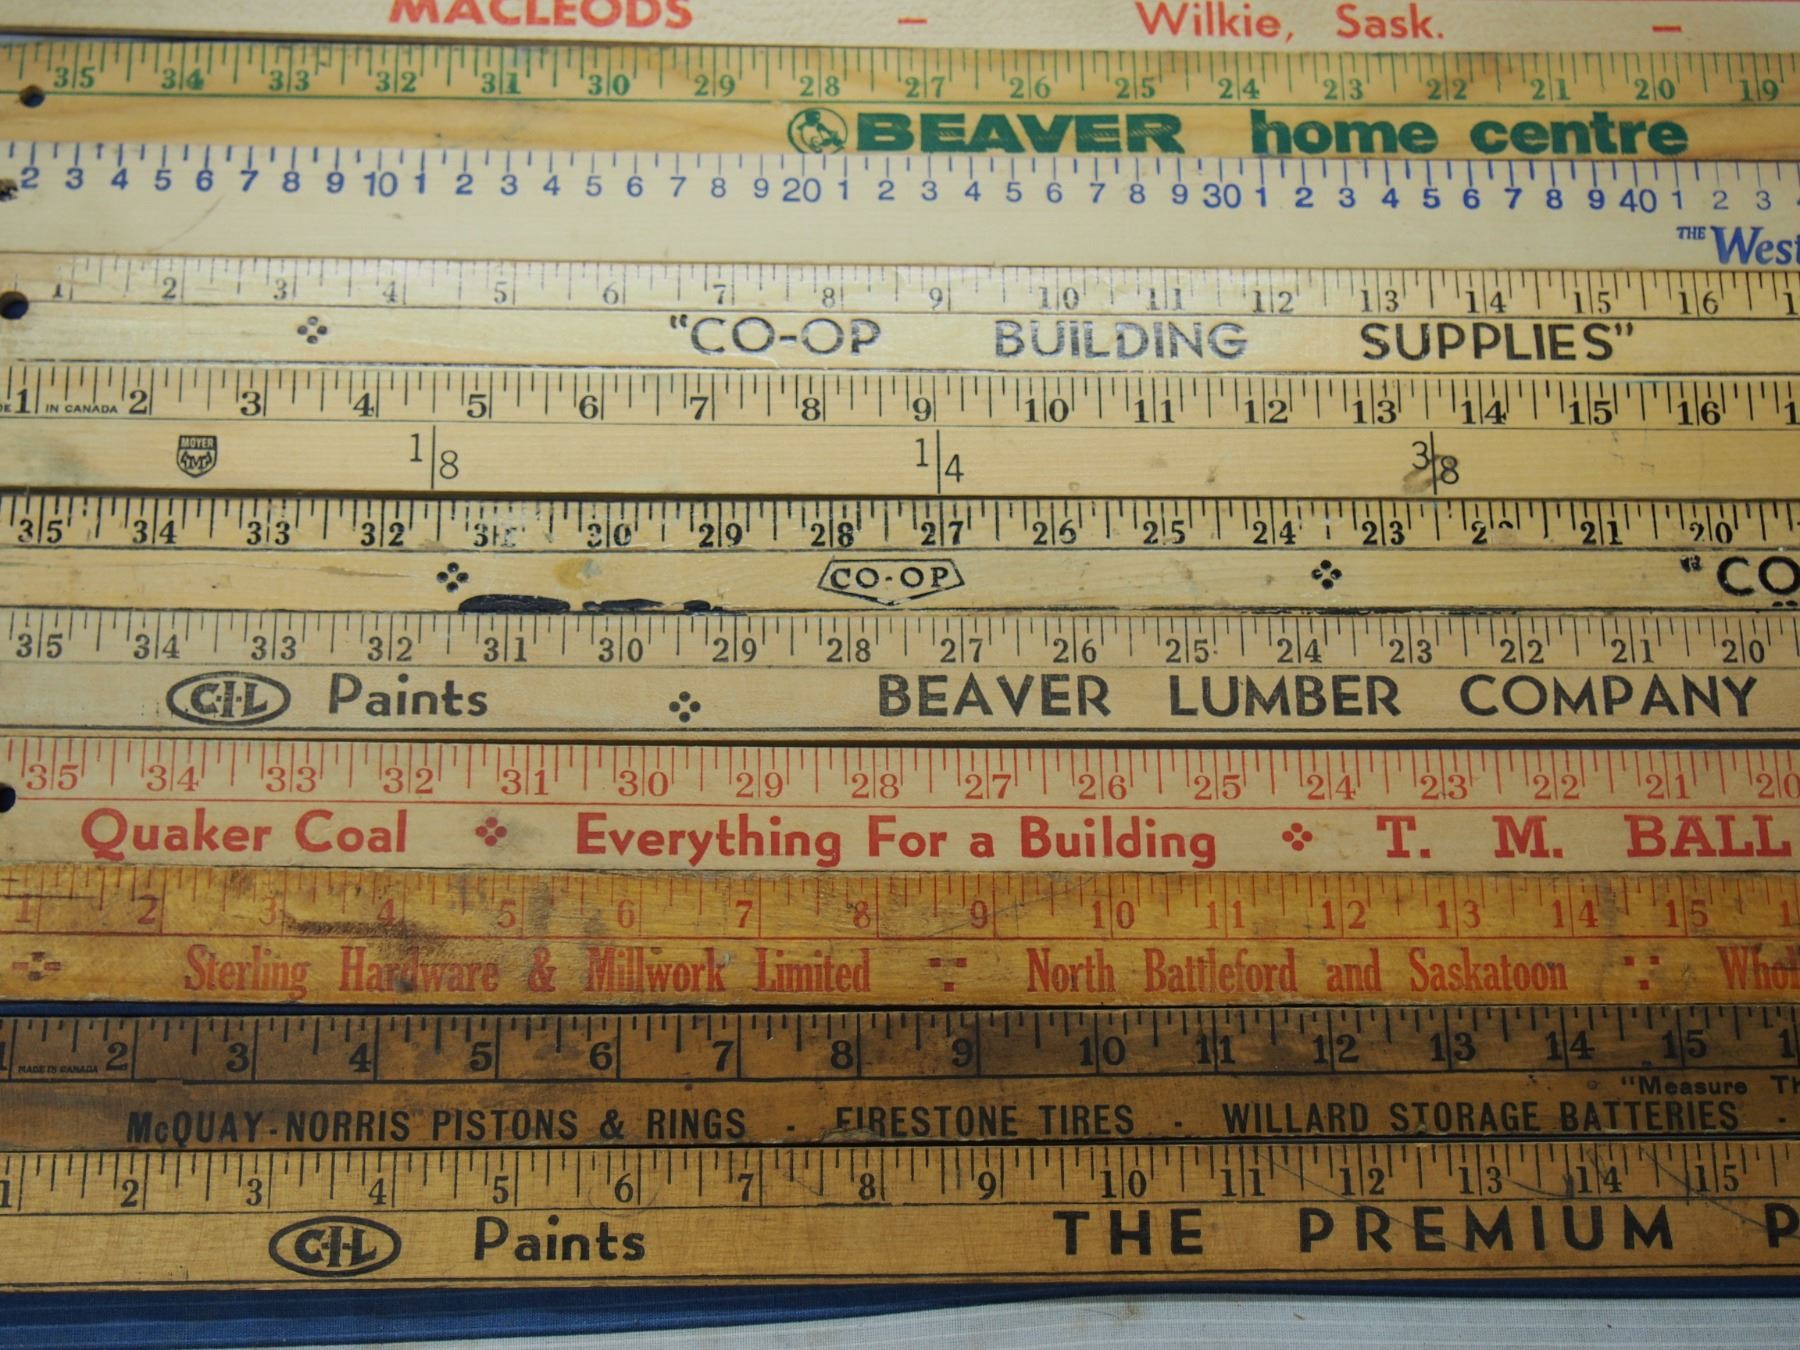 MACLEODS - Wilkie, Sask. -
35 34 33 32 31 30 29 28 27 26 25 24 23 22 21 20 19
BEAVER home centre
2 3 4 5 6 7 8 9 10 1 2 3 4 5 6 7 8 9 20 1 2 3 4 5 6 7 8 9 30 1 2 3 4 5 6 7 8 9 40 1 2 3
THE West
1 2 3 4 5 6 7 8 9 10 11 12 13 14 15 16
"CO-OP BUILDING SUPPLIES"
1 IN CANADA 2 3 4 5 6 7 8 9 10 11 12 13 14 15 16
MOYER M 1|8 1|4 3|8
35 34 33 32 31 30 29 28 27 26 25 24 23 21 20
CO-OP "CO
35 34 33 32 31 30 29 28 27 26 25 24 23 22 21 20
C-I-L Paints BEAVER LUMBER COMPANY
35 34 33 32 31 30 29 28 27 26 25 24 23 22 21 20
Quaker Coal Everything For a Building T. M. BALL
1 2 3 4 5 6 7 8 9 10 11 12 13 14 15
Sterling Hardware & Millwork Limited North Battleford and Saskatoon Whol
1 MADE IN CANADA 2 3 4 5 6 7 8 9 10 11 12 13 14 15
"Measure Th
McQUAY-NORRIS PISTONS & RINGS - FIRESTONE TIRES - WILLARD STORAGE BATTERIES -
1 2 3 4 5 6 7 8 9 10 11 12 13 14 15
C-I-L Paints THE PREMIUM P